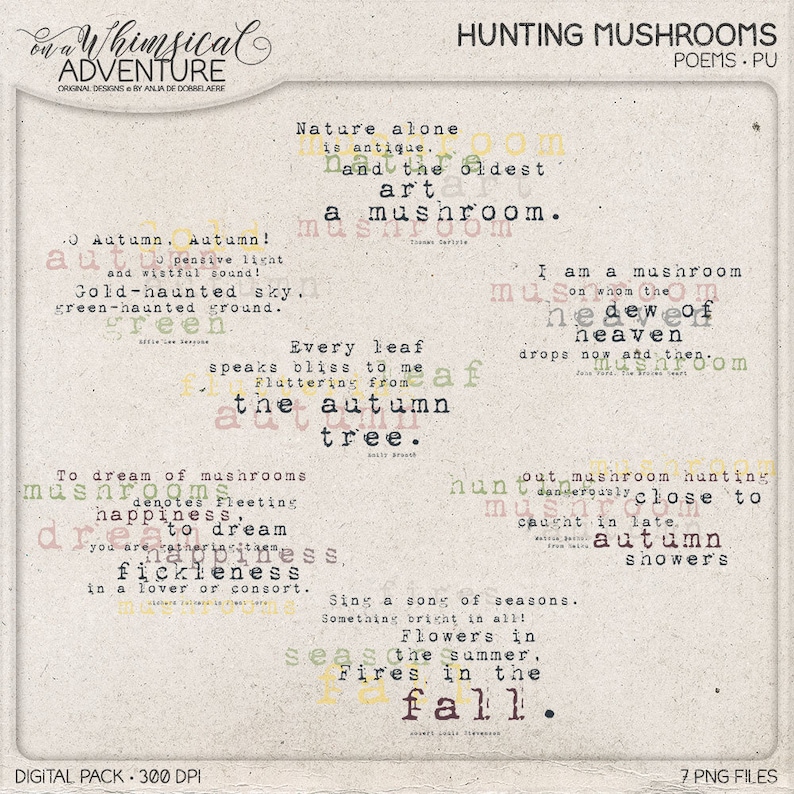 on a Whimsical
ADVENTURE
ORIGINAL DESIGNS © BY ANJA DE DOBBELAERE
HUNTING MUSHROOMS
POEMS • PU
Nature alone
mushroom
is antique,
nature
and the oldest
art
art
a mushroom.
mushroom
Thomas Carlyle
gold
O Autumn, Autumn!
autumn
O pensive light
and wistful sound!
autumn
Gold-haunted sky,
green-haunted ground.
green
Effie Lee Newsome
I am a mushroom
mushroom
on whom the
dew of
heaven
heaven
drops now and then.
mushroom
John Ford, The Broken Heart
Every leaf
speaks bliss to me
leaf
fluttering
Fluttering from
the autumn
autumn
tree.
Emily Brontë
To dream of mushrooms
mushrooms
denotes fleeting
happiness,
to dream
dream
you are gathering them,
happiness
fickleness
in a lover or consort.
Richard Folkard in Plant Lore
mushrooms
mushroom
out mushroom hunting
hunting
dangerously close to
mushroom
caught in late
Matsuo Bashou
from Haiku
autumn
showers
fires
Sing a song of seasons.
Something bright in all!
Flowers in
the summer,
seasons
Fires in the
fall
fall.
Robert Louis Stevenson
DIGITAL PACK • 300 DPI
7 PNG FILES